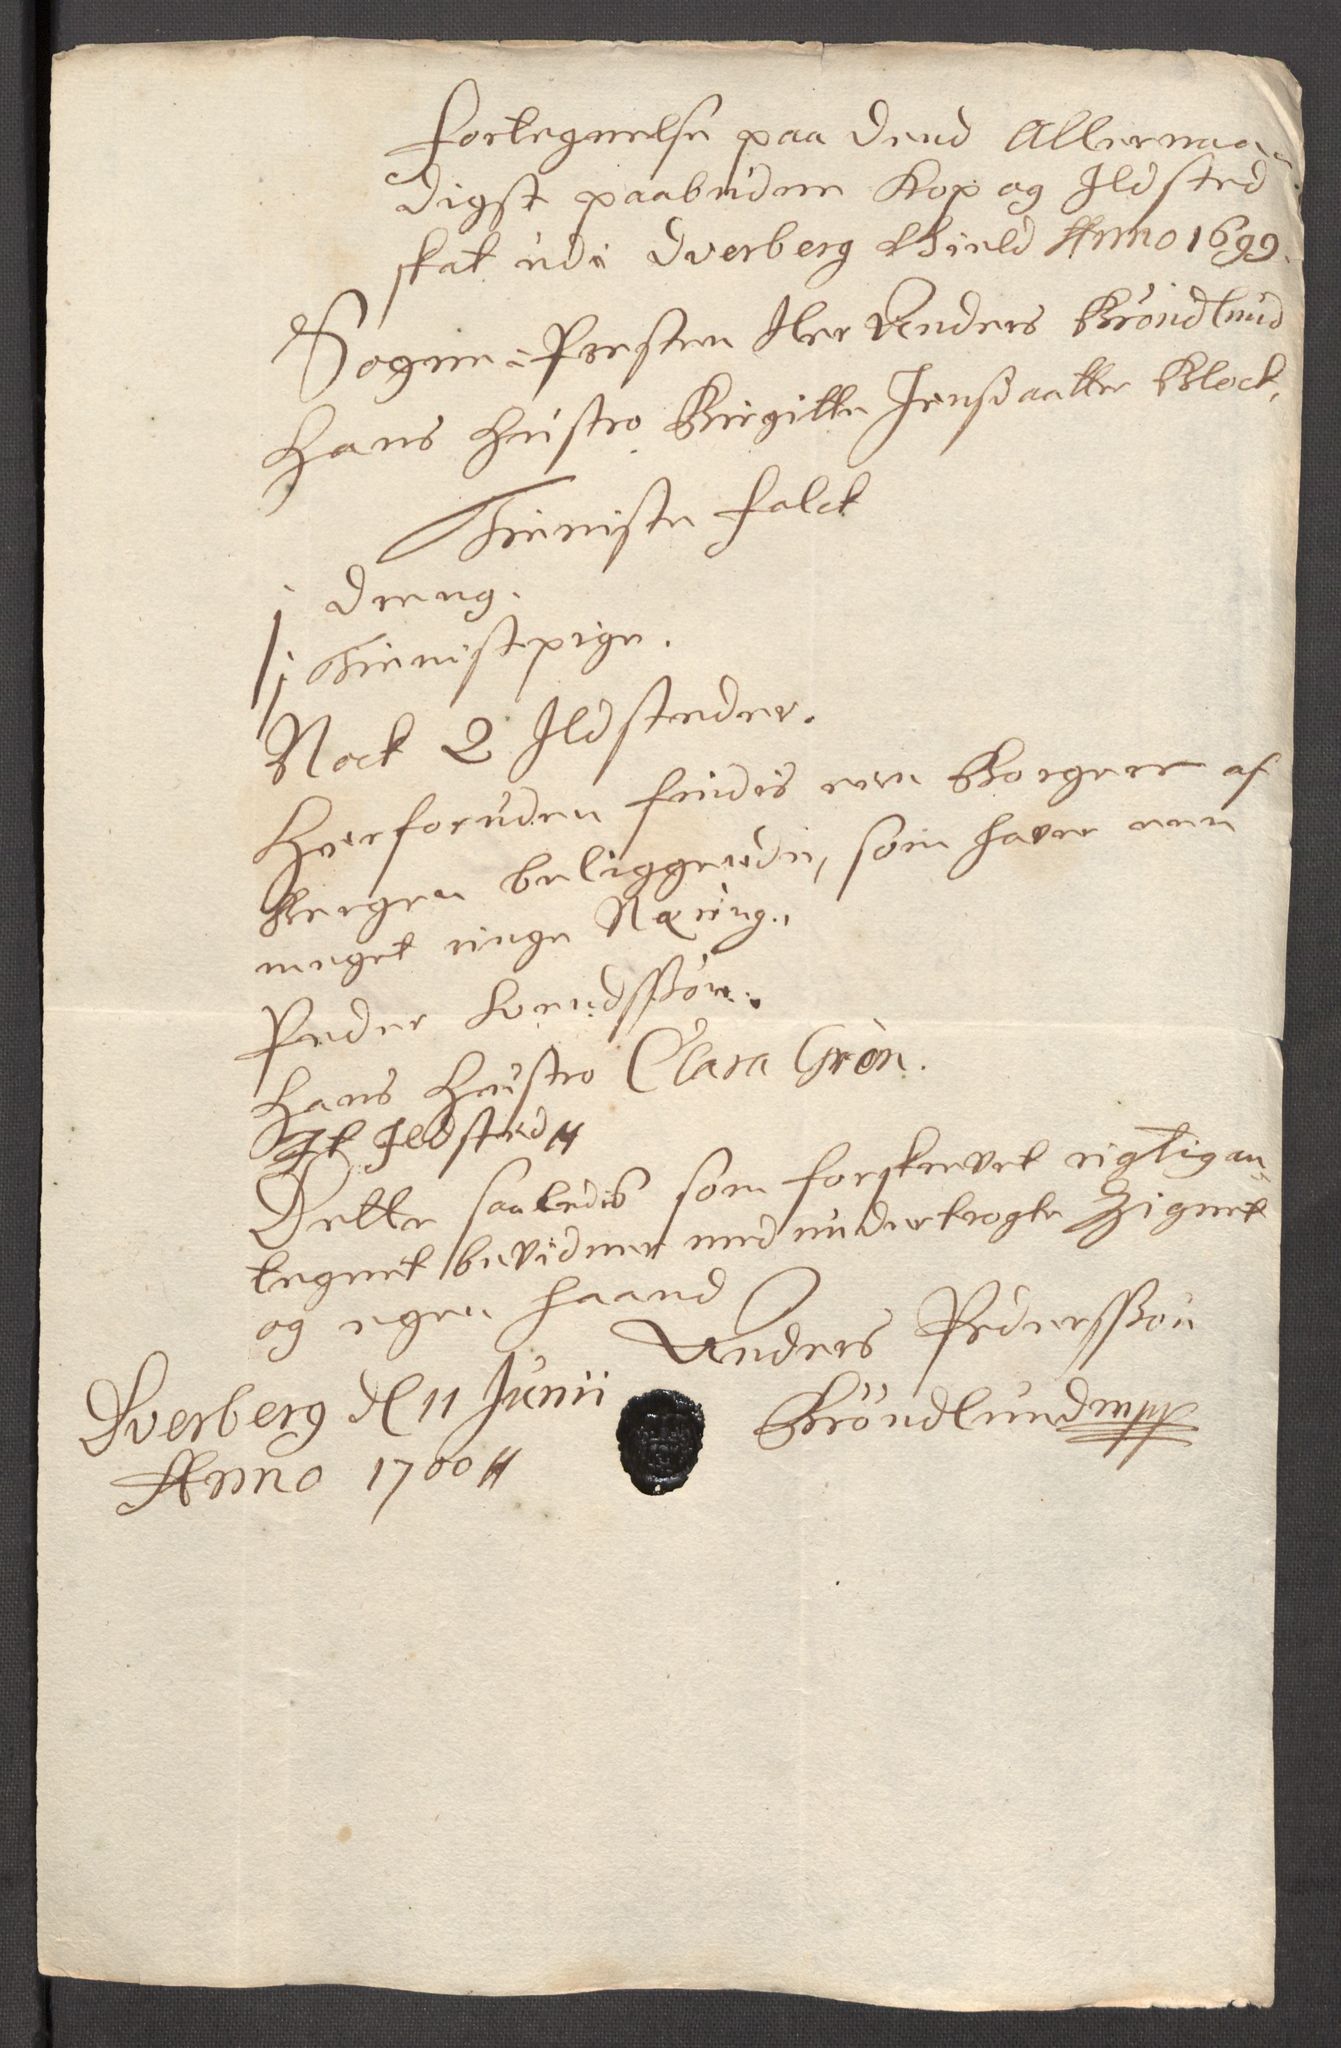 Fortegnelse paa dend Allernaa-
digst paabudne Kop og Ildsted
skat udi Dverberg Gield Anno 1699.
Sogne-Presten Her Anders Bröndlund
Hans Hustro Birgitte Jensdaatter Block,
Tieniste Folck
j Dreng.
j Tienistepige.
Nock 2 Ildsteder.
Herforuden findis een Borger af
Bergen beliggende, som haver een
meget ringe Næring.
Peder Svendssön.
Hans Hustro Clara Grön.
It Ildsted
Dette saaledis som forskrevet rigtig an-
tegnet bevidner med undertrögte Zignet
og egen haand
Anders Pederssön
Bröndlund mpp
Dverberg dl 11 Junii
Anno 1700